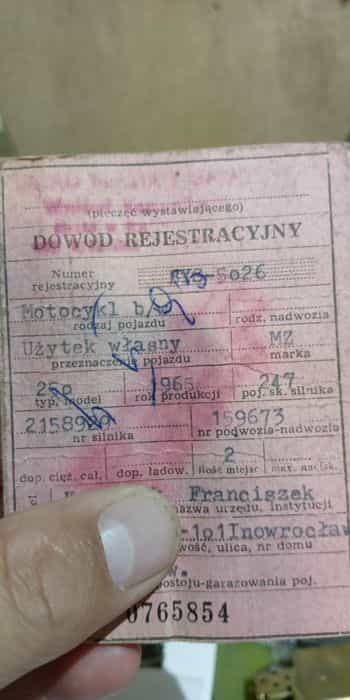 (pieczęć wystawiającego)
DOWÓD REJESTRACYJNY
Numer
rejestracyjny 5026
Motocykl
rodzaj pojazdu rodz. nadwozia
Użytek własny MZ
przeznaczenie pojazdu marka
1965 247
typ, model rok produkcji poj. sk. silnika
159673
nr silnika nr podwozia-nadwozia
2
dop. cięż. cał. dop. ładow. ilość miejsc
Franciszek
nazwa urzędu, instytucji
Inowrocław
ulica, nr domu
postoju-garażowania poj.
0765854